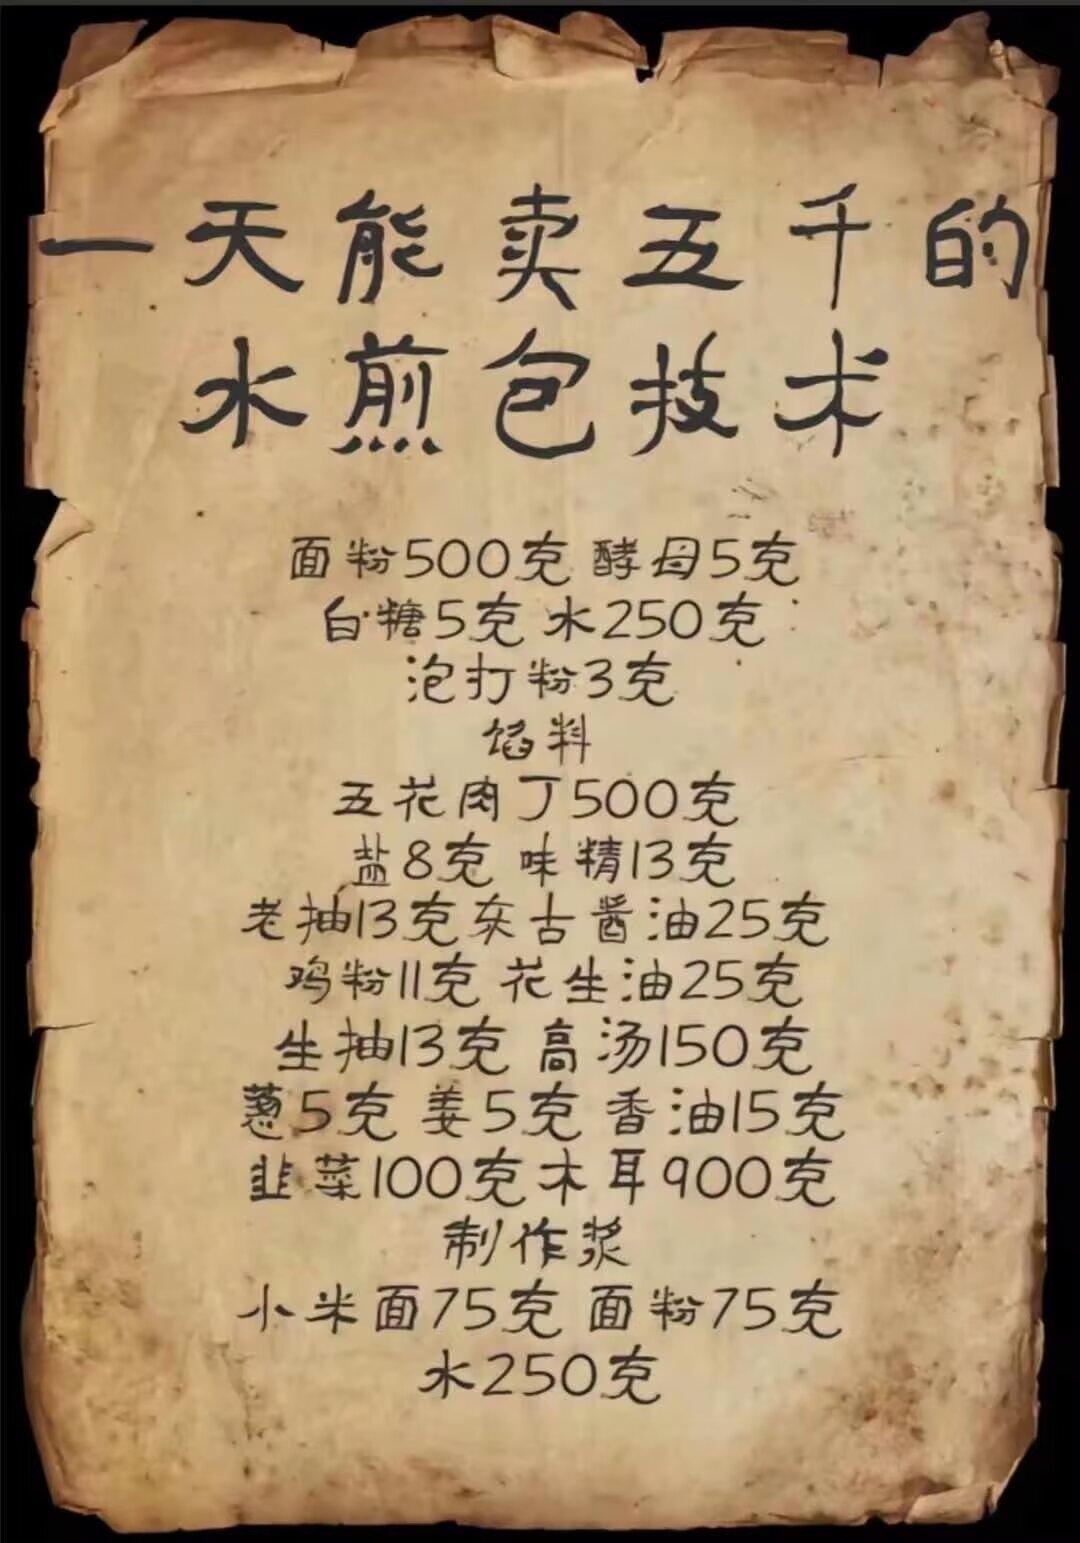 一天能卖五千的
水煎包技术
面粉500克 酵母5克
白糖5克 水250克
泡打粉3克
馅料
五花肉丁500克
盐8克 味精13克
老抽13克东古酱油25克
鸡粉11克 花生油25克
生抽13克 高汤150克
葱5克 姜5克 香油15克
韭菜100克木耳900克
制作浆
小米面75克 面粉75克
水250克